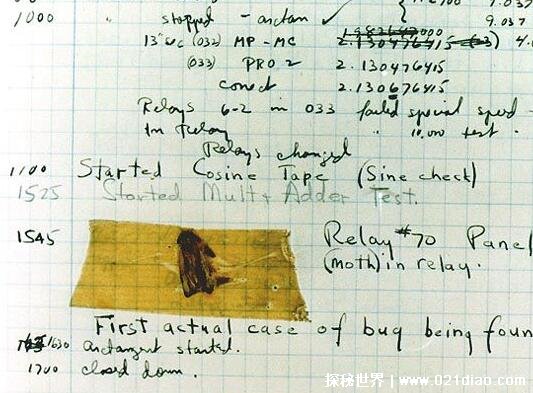 9.037
1000 " stopped - arctan ✓
13"uc (032) MP - MC 2.130476415 4.
(033) PRO 2 2.130476415
conect 2.130676415
Relays 6-2 in 033 failed special speed
In Relay " 10.000 test.
Relays changed
1100 Started Cosine Tape (Sine check)
1525 Started Mult + Adder Test.
1545 Relay #70 Panel
(moth) in relay.
First actual case of bug being foun
1630 arctangent started.
1700 closed down.
探秘世界 | www.021diao.com